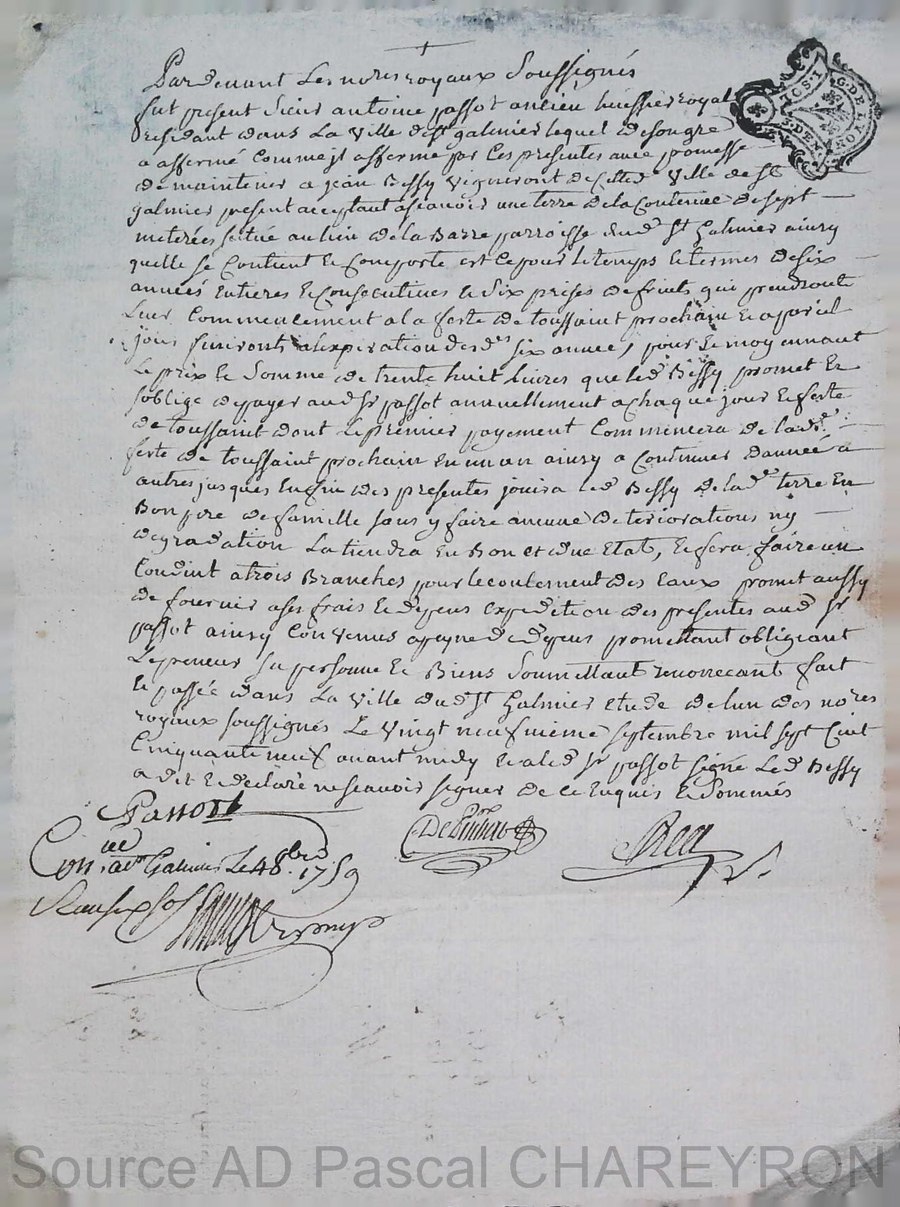 Pardevant Les no.res royaux Soussignés
fut present Sieur antoine passot ancien huissier royal
residant dans La Ville de st galmier lequel de son gre
a affermé Comme jl afferme par Ces presentes avec promesse
de maintenir a jean Bessy Vigneront de cette d. Ville de St
galmier present acceptant ascavoir une terre de la Contenue de sept
meterées scitué au lieu de la Barre parroisse dud. St Galmier ainsy
quelle se Contient et Comporte est ce pour le temps et termes de six
années Entieres et Consecutives et six prises de fruits qui prendront
Leur Commencement a la feste de toussaint prochain et a pareil
jour finiront a lexpiration desd.es six années pour et moyennant
Le prix et Somme de trente huit Livres que led. Bessy promet et
soblige de payer aud. sr passot annuellement a chaque jour et feste
de toussaint dont le premier payement Commencera de lad.e
feste de toussaint prochain en un an ainsy a Continuer dannée a
autres jusques En fin des presentes jouira led. Bessy de lad.e terre En
Bon pere de famille sans y faire aucune deteriorations ny
degradation La tiendra En Bon et due Etat, et fera faire un
Conduit a trois Branches pour lecoulement des eaux promet aussy
de fournir a ses frais et depens expedition des presentes aud. sr
passot ainsy Convenus a peyne de depens promettant obligeant
Le preneur sa personne et Biens Soumettant renonceant fait
et passée dans La Ville dud. St Galmier etude de lun des no.res
royaux soussignés Le Vingt neufvieme septembre mil sept Cent
Cinquante neuf avant midy et a led. sr passot signé Led. Bessy
a dit et declaré ne scavoir signer de ce Enquis et Sommés
Passot
Con.lé a st Galmier Le 4 8bre 1759
Rea
G. DE LYON
Source AD Pascal CHAREYRON